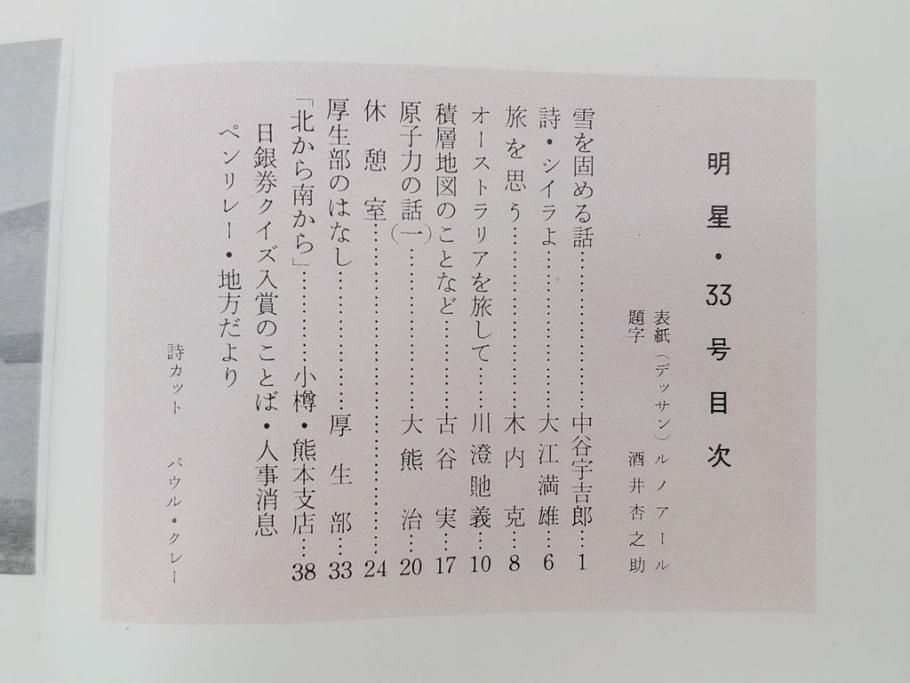 明星・33号目次
表紙(デッサン) ルノアール
題字 酒井杏之助
雪を固める話…………………中谷宇吉郎…1
詩・シイラよ…………………大江満雄…6
旅を思う…………………木内克…8
オーストラリアを旅して……川澄貤義…10
積層地図のことなど…………古谷実…17
原子力の話(一)…………………大熊治…20
休憩室……………………………………24
厚生部のはなし…………………厚生部…33
「北から南から」…………小樽・熊本支店…38
日銀券クイズ入賞のことば・人事消息
ペンリレー・地方だより
詩カット パウル・クレー